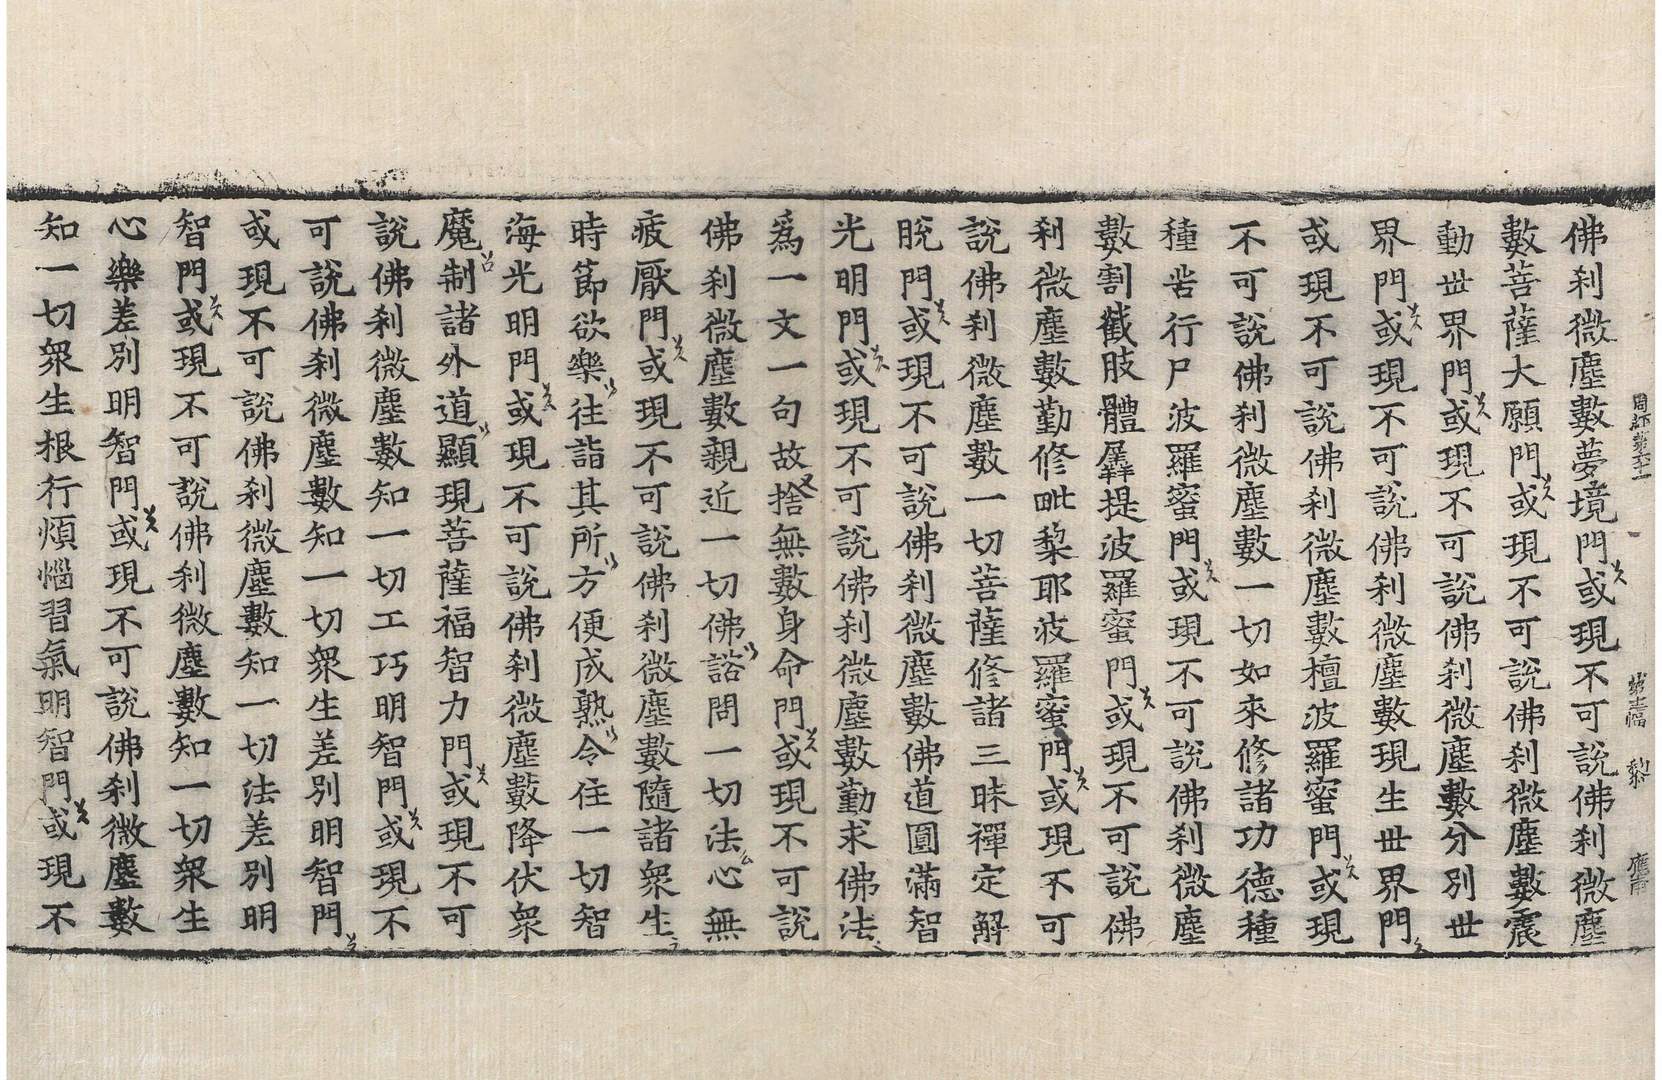 周經第六十一 第十五幅 黎
佛刹微塵數夢境門或現不可說佛刹微塵
數菩薩大願門或現不可說佛刹微塵數震
動世界門或現不可說佛刹微塵數分別世
界門或現不可說佛刹微塵數現生世界門
或現不可說佛刹微塵數檀波羅蜜門或現
不可說佛刹微塵數一切如來修諸功德種
種苦行尸波羅蜜門或現不可說佛刹微塵
數割截肢體羼提波羅蜜門或現不可說佛
刹微塵數勤修毗黎耶波羅蜜門或現不可
說佛刹微塵數一切菩薩修諸三昧禪定解
脫門或現不可說佛刹微塵數佛道圓滿智
光明門或現不可說佛刹微塵數勤求佛法
爲一文一句故捨無數身命門或現不可說
佛刹微塵數親近一切佛諮問一切法心無
疲厭門或現不可說佛刹微塵數隨諸衆生
時節欲樂往詣其所方便成熟令住一切智
海光明門或現不可說佛刹微塵數降伏衆
魔制諸外道顯現菩薩福智力門或現不可
說佛刹微塵數知一切工巧明智門或現不
可說佛刹微塵數知一切衆生差別明智門
或現不可說佛刹微塵數知一切法差別明
智門或現不可說佛刹微塵數知一切衆生
心樂差別明智門或現不可說佛刹微塵數
知一切衆生根行煩惱習氣明智門或現不